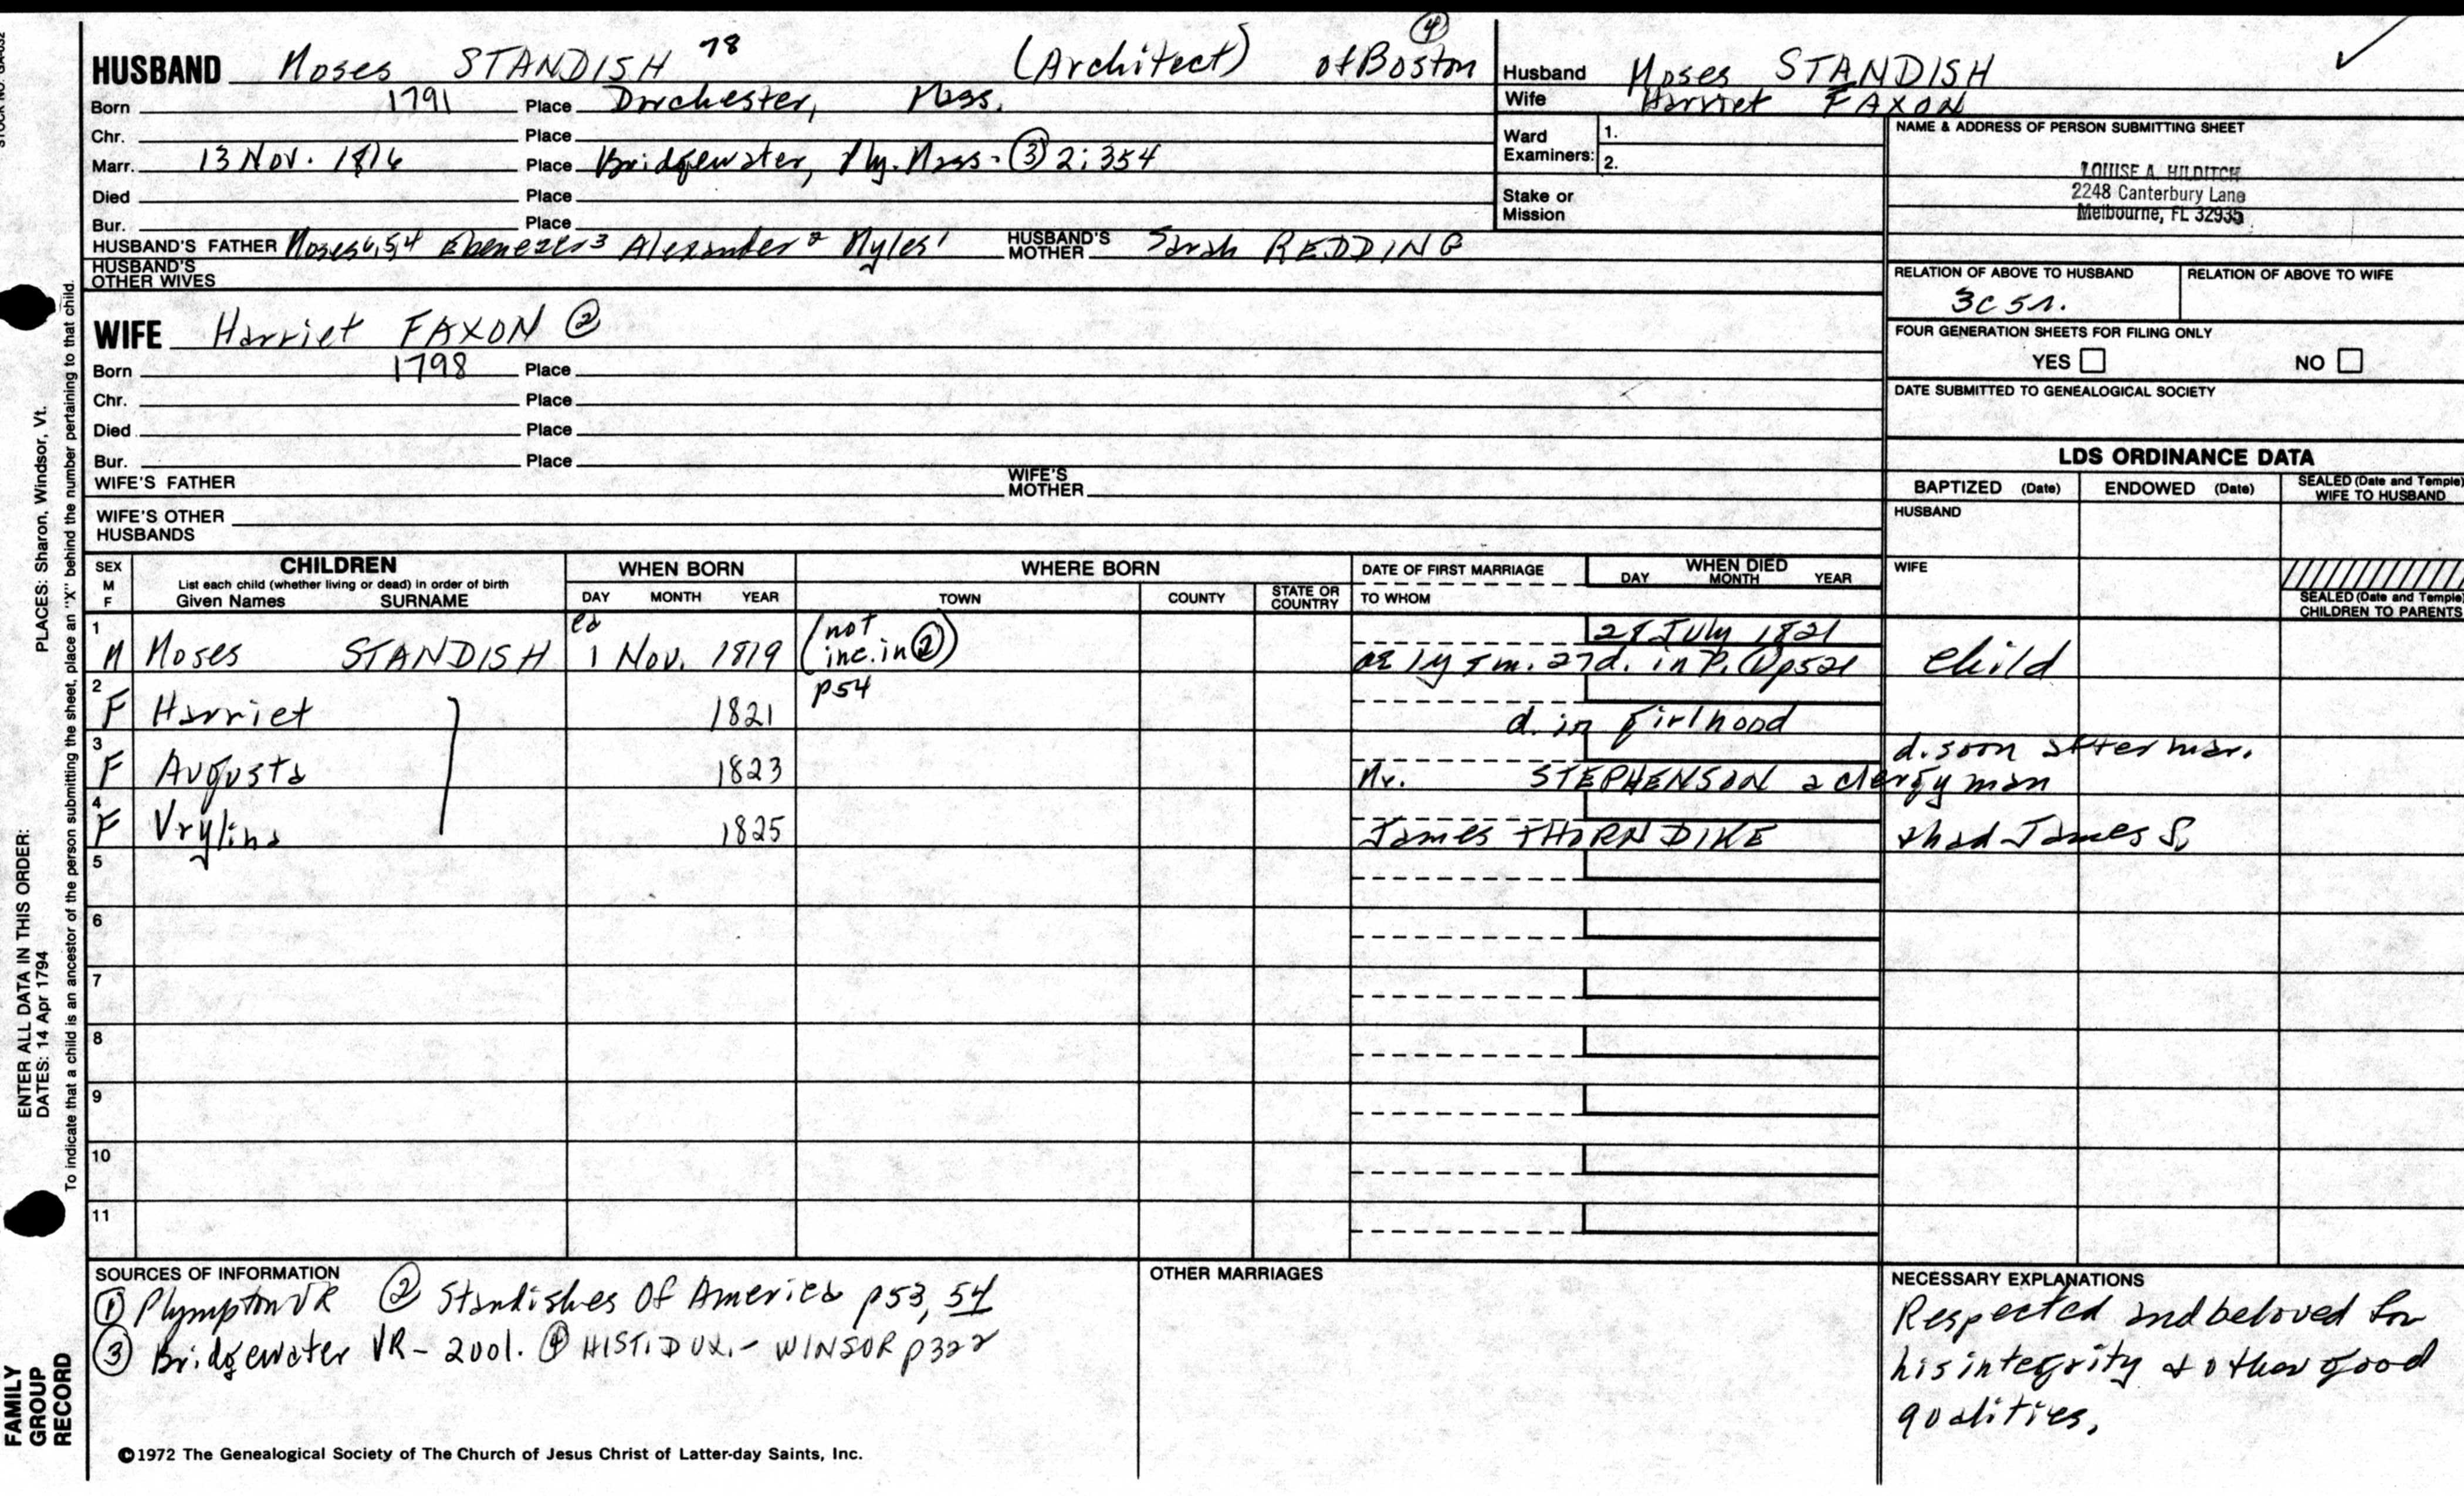 STOCK NO. GA-032
HUSBAND Moses STANDISH 78 (Architect) of Boston ④
Born 1791 Place Dorchester, Mass.
Chr. Place
Marr. 13 Nov. 1816 Place Bridgewater, Ply. Mass - ③ 2:354
Died Place
Bur. Place
HUSBAND'S FATHER Moses 6,5,4 Ebenezer 3 Alexander 2 Myles 1 HUSBAND'S MOTHER Sarah REDDING
HUSBAND'S OTHER WIVES
WIFE Harriet FAXON ②
Born 1798 Place
Chr. Place
Died Place
Bur. Place
WIFE'S FATHER WIFE'S MOTHER
WIFE'S OTHER HUSBANDS
Husband Moses STANDISH
Wife Harriet FAXON
Ward Examiners: 1.
2.
Stake or Mission
NAME & ADDRESS OF PERSON SUBMITTING SHEET
LOUISE A. HILDITCH
2248 Canterbury Lane
Melbourne, FL 32935
RELATION OF ABOVE TO HUSBAND RELATION OF ABOVE TO WIFE
3C 5r.
FOUR GENERATION SHEETS FOR FILING ONLY
YES NO
DATE SUBMITTED TO GENEALOGICAL SOCIETY
LDS ORDINANCE DATA
BAPTIZED (Date) ENDOWED (Date) SEALED (Date and Temple) WIFE TO HUSBAND
HUSBAND
WIFE
SEALED (Date and Temple) CHILDREN TO PARENTS
SEX M F
CHILDREN
List each child (whether living or dead) in order of birth
Given Names SURNAME
WHEN BORN
DAY MONTH YEAR
WHERE BORN
TOWN COUNTY STATE OR COUNTRY
DATE OF FIRST MARRIAGE
TO WHOM
WHEN DIED
DAY MONTH YEAR
1 M Moses STANDISH ca 1 Nov. 1819 (not inc. in ②) p54 28 July 1821
ae 1y 8m. 27d. in P. ① p521 child
2 F Harriet 1821 d. in girlhood
3 F Augusta 1823 Mr. STEPHENSON a clergyman d. soon after mar.
4 F Vrylina 1825 James THORNDIKE & had James S.
5
6
7
8
9
10
11
SOURCES OF INFORMATION
① Plympton VR ② Standishes Of America p53, 54
③ Bridgewater VR - 2 vol. ④ HIST. DUX. - WINSOR p322
OTHER MARRIAGES
NECESSARY EXPLANATIONS
Respected and beloved for
his integrity & other good
qualities.
©1972 The Genealogical Society of The Church of Jesus Christ of Latter-day Saints, Inc.
ENTER ALL DATA IN THIS ORDER:
DATES: 14 Apr 1794 PLACES: Sharon, Windsor, Vt.
To indicate that a child is an ancestor of the person submitting the sheet, place an "X" behind the number pertaining to that child.
FAMILY
GROUP
RECORD